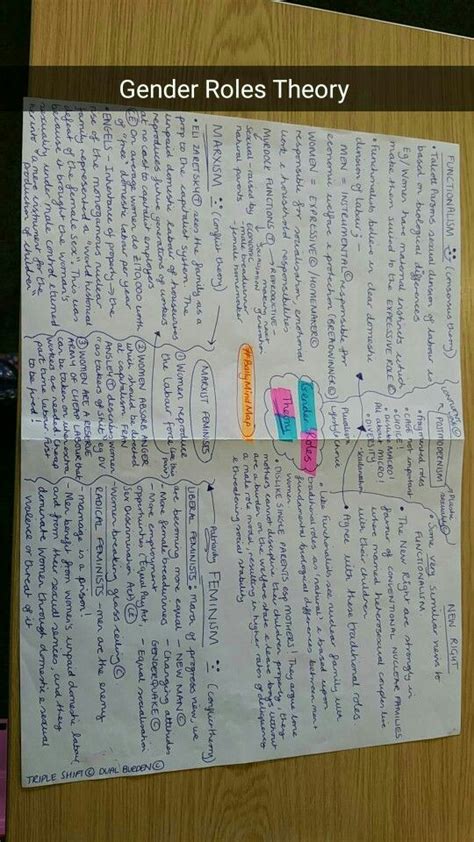 Gender Roles Theory
FUNCTIONALISM (consensus theory)
• Talcott Parsons, sexual division of labour is
based on biological differences
Eg/ Women have maternal instincts which
make them suited to the EXPRESSIVE ROLE
• Functionalists believe in clear domestic
division of labour -
MEN = INSTRUMENTAL © responsible for
economic welfare protection (BREADWINNER ©)
WOMEN = EXPRESSIVE © / HOMEMAKER ©
responsible for socialisation, emotional
work & household responsibilities
MURDOCK FUNCTIONS
→ REPRODUCTIVE -
Sexual
natural parents
female homemaker
MARXISM (conflict theory)
• ELI ZARETSKY sees the family as a
prop to the capitalist system. The
unpaid domestic labour of housewives
reproduces future generations of workers
at no cost to capitalist employers
On average women do
of "free" domestic labour per year
• ENGELS - Inheritance of property → the
rise of the monogamous nuclear
family represented a "world historical
defeat of the female sex". This was
because it brought the woman's
sexuality under male control & turned
her into "a mere instrument for the
production of children"
MARXIST FEMINISTS
① Women reproduce
the labour force
② WOMEN ABSORB ANGER
which should be directed
at capitalism. FRAN
ANSLEY describes women
as 'takers of shit'
③ WOMEN ARE A RESERVE
ARMY OF CHEAP LABOUR that
can be taken on when extra
workers are needed
part time labour first
to be fired!
#BodyMindMap
Gender Roles
Theory
POSTMODERNISM
• Fragmented roles
• CAGE not important
• CHOICE!
All about MICRO!
• DIVERSITY
NEW RIGHT
• Some very similar views to
FUNCTIONALISM
• The New Right are strongly in
favour of CONVENTIONAL NUCLEAR FAMILIES
where married heterosexual couples live
with their children
• Agree with these traditional roles
Like functionalists see nuclear family with
traditional roles as 'natural' & based upon
fundamental biological differences between men &
women
• DISLIKE SINGLE PARENTS esp MOTHERS! They argue lone
mothers cannot discipline their children properly, they
are a burden on the welfare state & leave boys without
a male role model → higher rates of delinquency
& threatening social stability
Patriarchy
FEMINISM (conflict theory)
LIBERAL FEMINISTS • March of progress view, we
are becoming more equal - NEW MAN ©
- More female breadwinners - Changing attitudes
- More employment GENDERQUAKE ©
Opportunities (Equal Pay Act, - Equal socialisation
Sex Discrimination Act)
- Women breaking glass ceiling ©
RADICAL FEMINISTS - men are the enemy
marriage is a prison!
- Men benefit from women's unpaid domestic labour
and from their sexual services, and they
dominate women through domestic & sexual
violence or threat of it
TRIPLE SHIFT © DUAL BURDEN ©